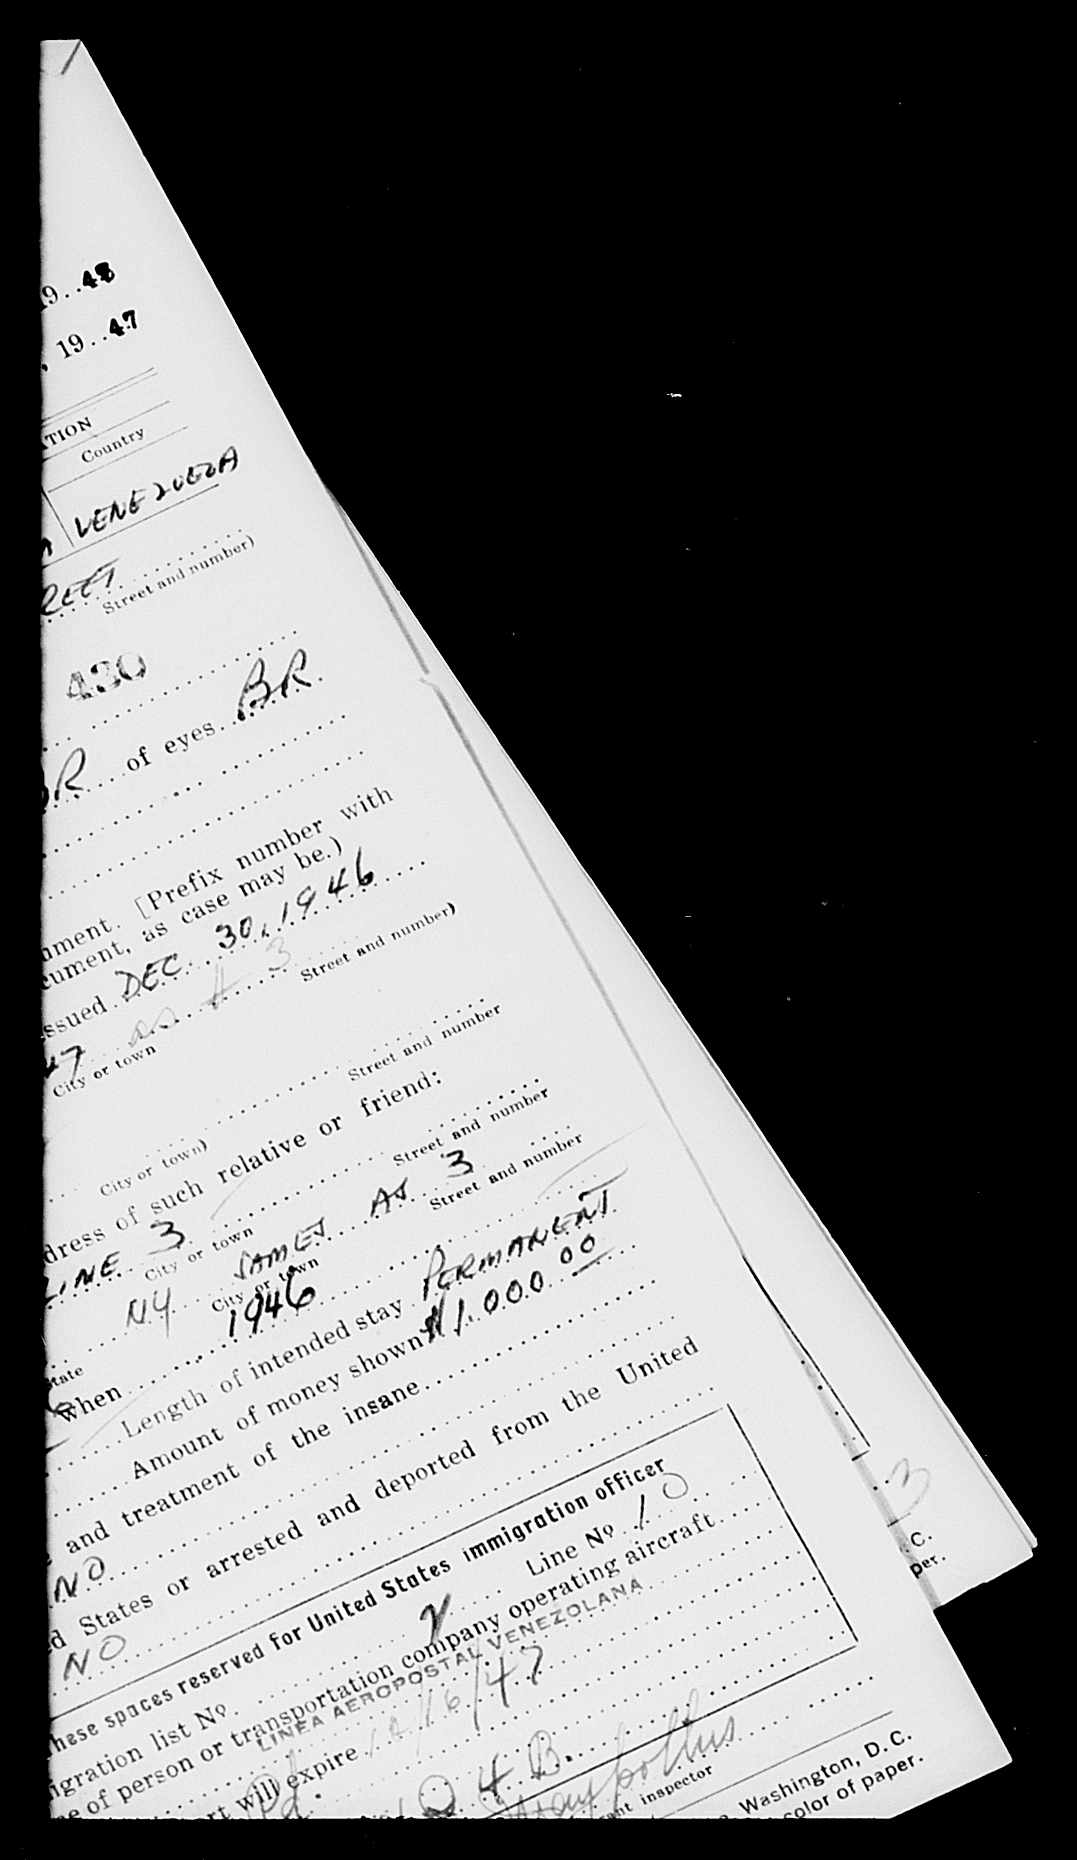 19..48
, 19..47
TION
Country
VENEZUELA
REET
Street and number)
430
R of eyes BR.
nment. [Prefix number with
cument, as case may be.)
ssued DEC 30, 1946
47 as # 3
City or town Street and number)
City or town) Street and number
dress of such relative or friend:
LINE 3
City or town Street and number
NY SAMES AS 3
City or town Street and number
tate
when 1946
Length of intended stay PERMANENT
Amount of money shown $1,000 00
and treatment of the insane
NO
d States or arrested and deported from the United
NO
hese spaces reserved for United States immigration officer
igration list No. Line No. 10
e of person or transportation company operating aircraft
LINEA AEROPOSTAL VENEZOLANA
rt will expire /6/47
4 B.
ant inspector
Washington, D. C.
color of paper.
3
C.
per.